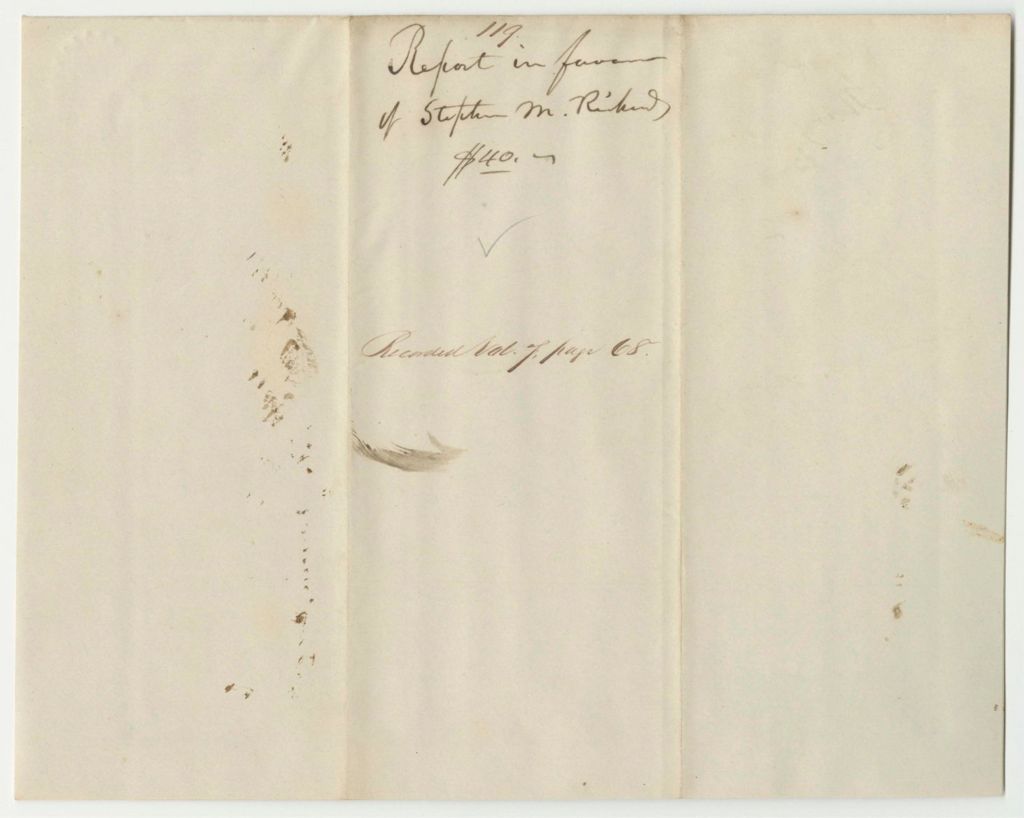 119.
Report in favor
of Stephen M. Richards
$40. ~
Recorded Vol. 7. page 68.